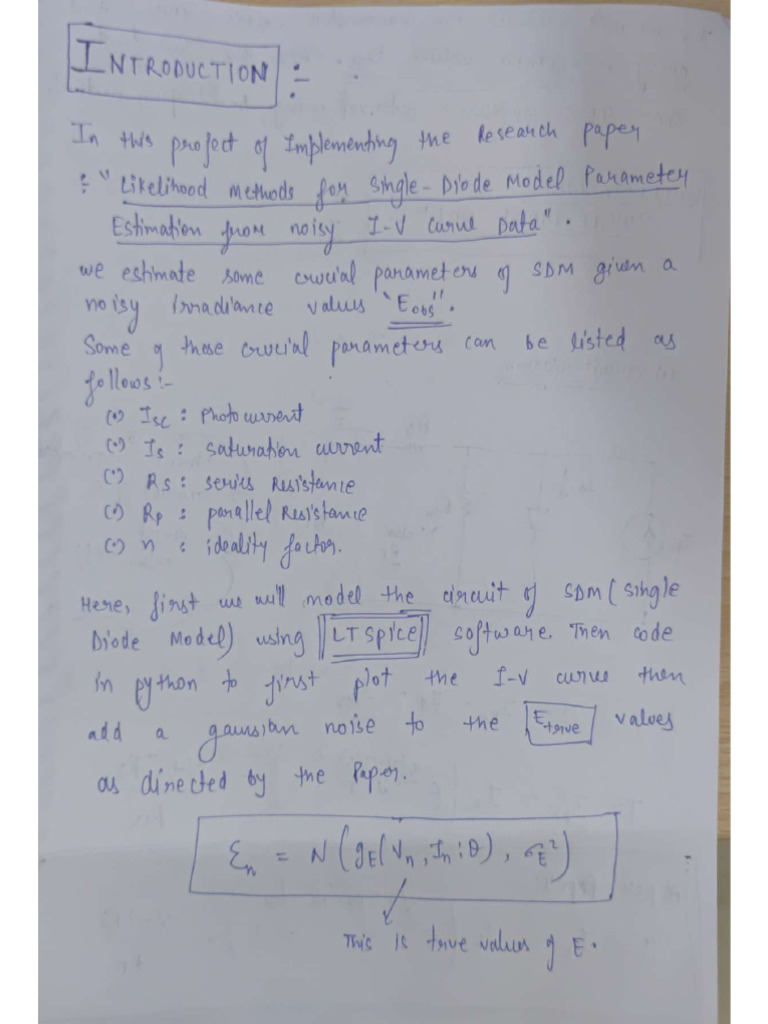 INTRODUCTION :-
In this project of Implementing the Research paper
:- "Likelihood methods for Single-Diode Model Parameter
Estimation from noisy I-V curve Data".
we estimate some crucial parameters of SDM given a
noisy irradiance values "E_obs".
Some of these crucial parameters can be listed as
follows :-
(•) I_sc : Photocurrent
(•) I_s : saturation current
(•) R_s : series Resistance
(•) R_p : parallel Resistance
(•) n : ideality factor.
Here, first we will model the circuit of SDM (single
Diode Model) using LTSpice software. Then code
in python to first plot the I-V curve then
add a gaussian noise to the E_true values
as directed by the Paper.
ℰ_n = N (g_E(V_n, I_n ; θ), σ_E²)
This is true values of E.